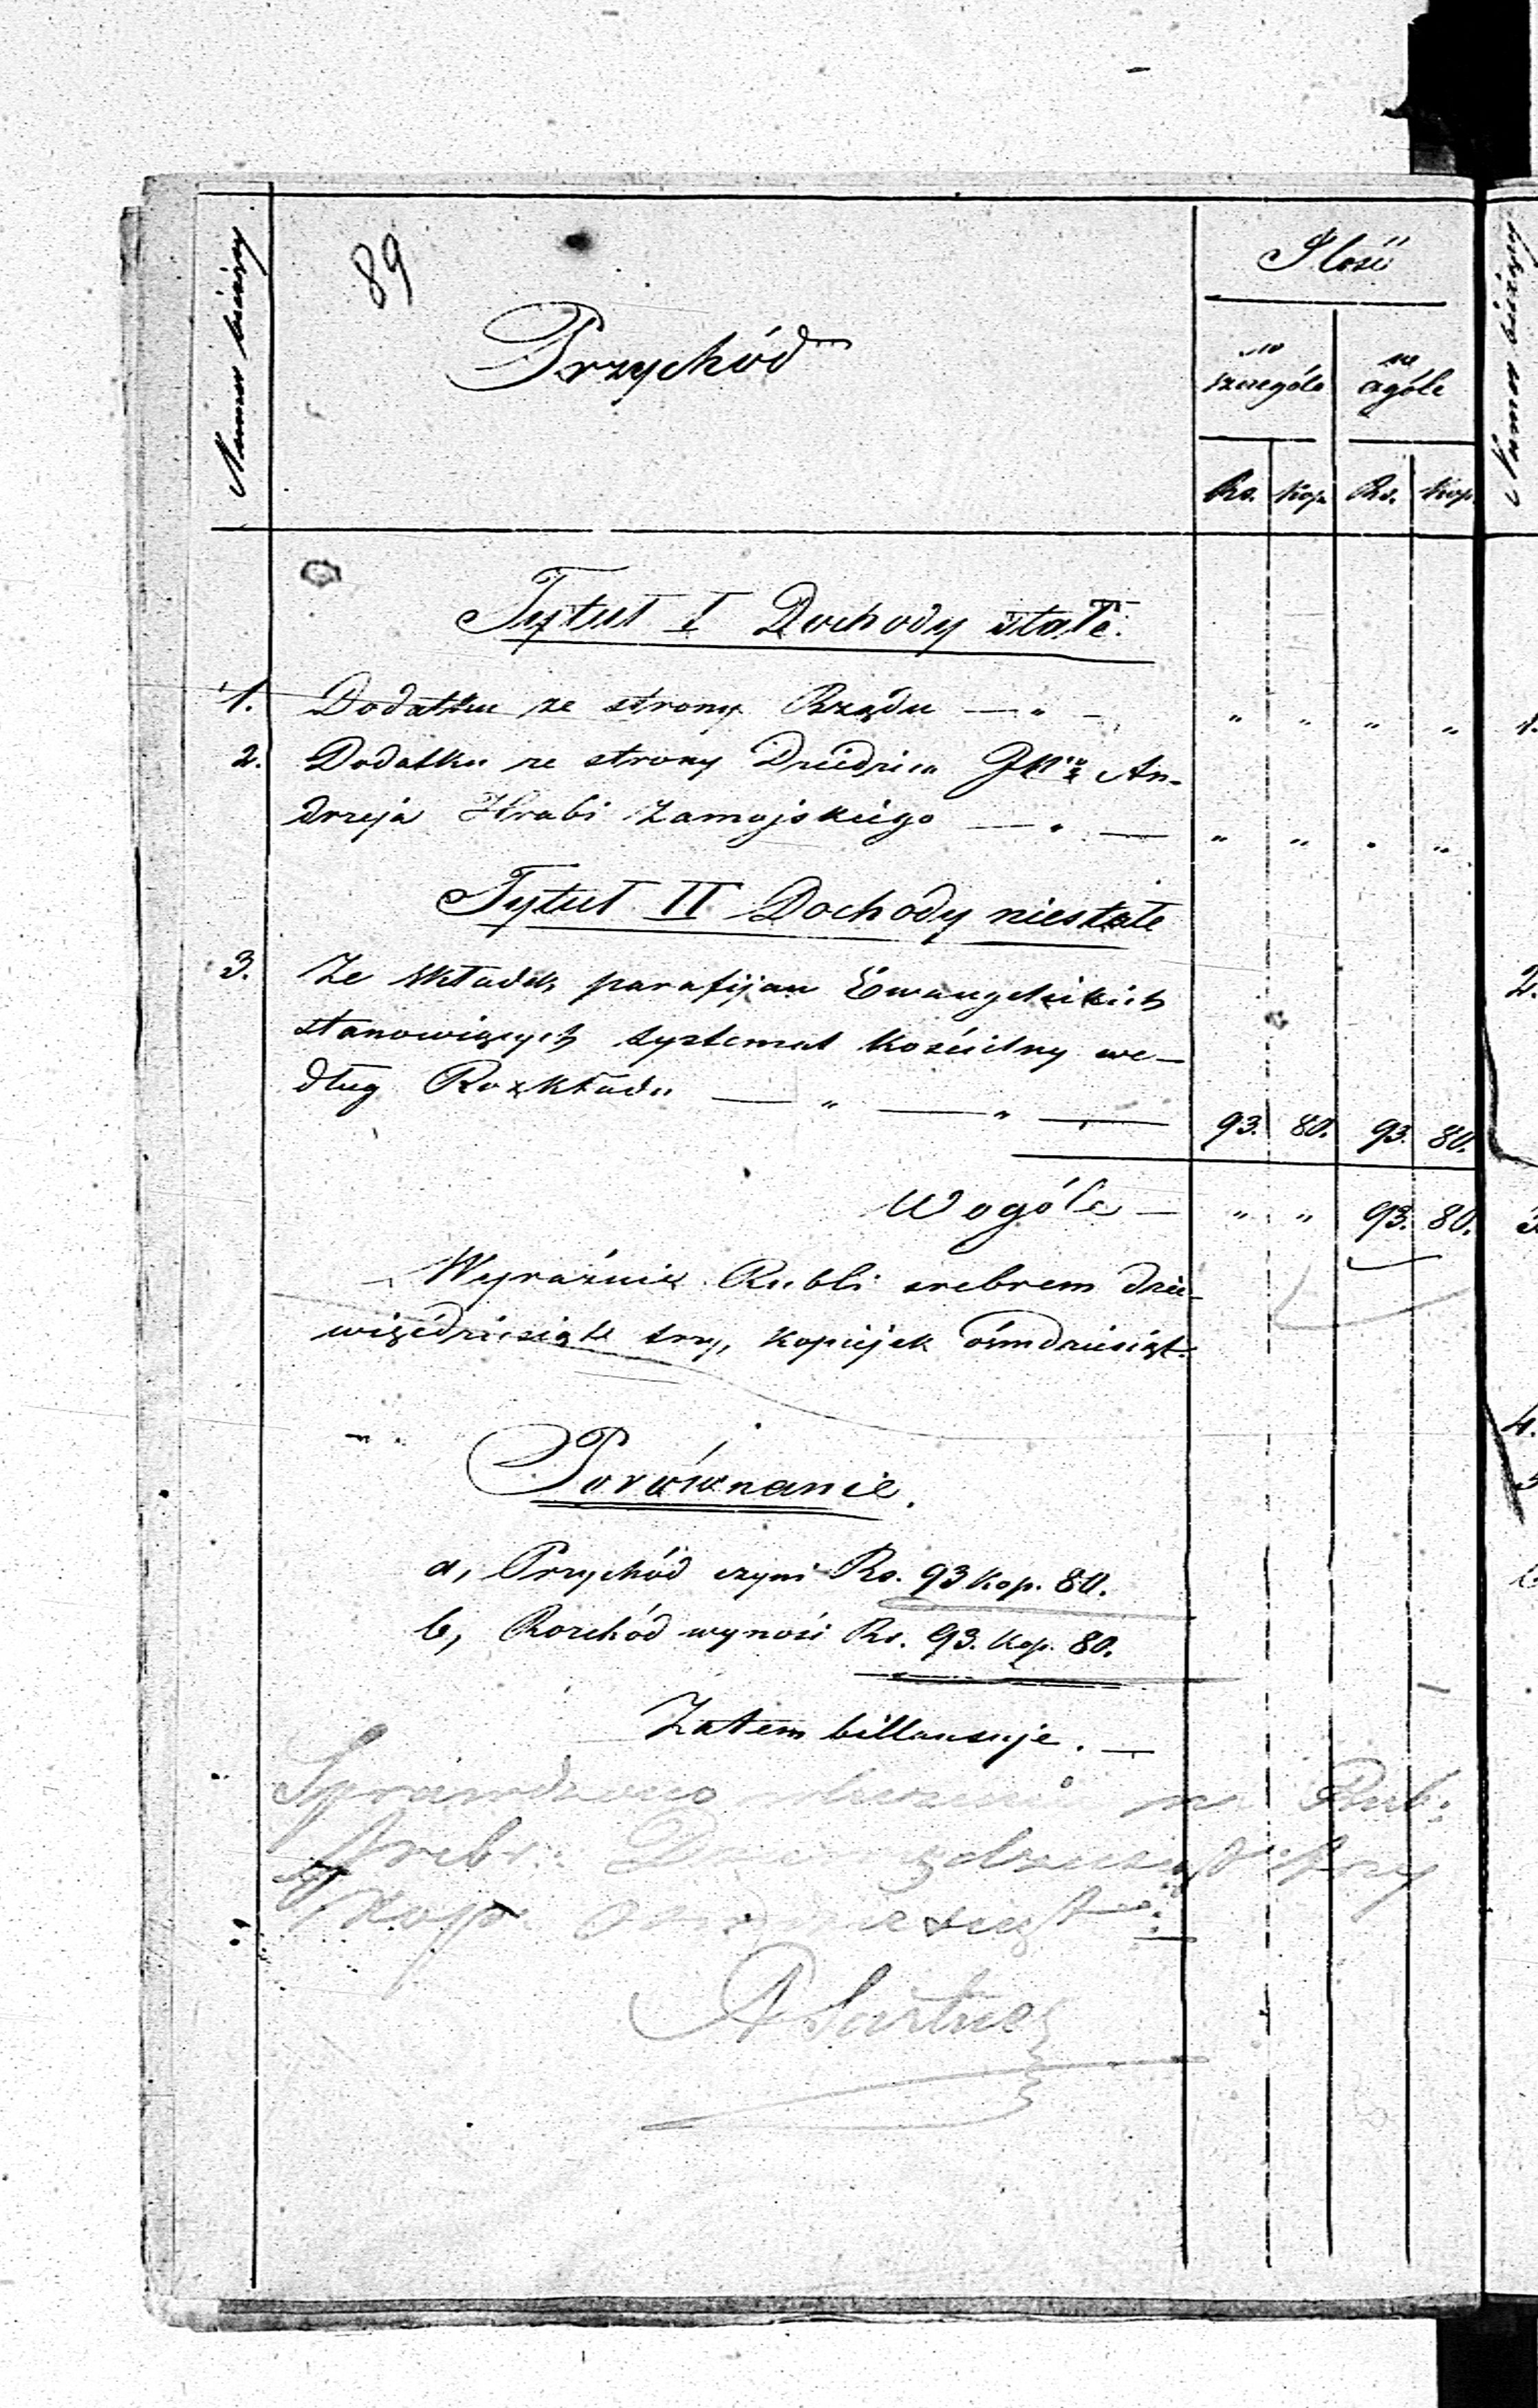 Numer bieżący
89
Przychód
Ilość
w szczególe
w ogóle
Rs. Kop. Rs. Kop.
Tytuł I Dochody stałe.
1. Dodatku ze strony Rządu — „ — „ „ „ „
2. Dodatku ze strony Dziedzica An-
drzeja Hrabi Zamojskiego — „ — „ „ „ „
Tytuł II Dochody niestałe
3. Ze składek parafijan Ewangelickich
stanowiących systemat kościelny we-
dług Rozkładu — „ — „ — 93. 80. 93. 80.
Wogóle — „ „ 93. 80.
Wyraźnie Rubli srebrem dzie-
więćdziesiąt trzy, kopiejek ośmdziesiąt.
Porównanie.
a, Przychód czyni Rs. 93 Kop. 80.
b, Rozchód wynosi Rs. 93. Kop. 80.
Zatem billansuje. —
Sprawdzono na Rub:
Srebr: Dziewięćdziesiąt trzy
kop: ośmdziesiąt
Numer bieżący